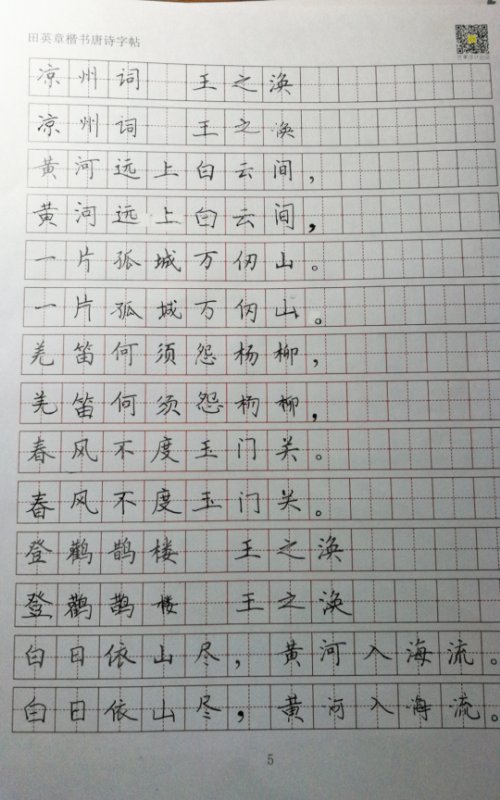 田英章楷书唐诗字帖
凉州词 王之涣
凉州词 王之涣
黄河远上白云间，
黄河远上白云间，
一片孤城万仞山。
一片孤城万仞山。
羌笛何须怨杨柳，
羌笛何须怨杨柳，
春风不度玉门关。
春风不度玉门关。
登鹳鹊楼 王之涣
登鹳鹊楼 王之涣
白日依山尽，黄河入海流。
白日依山尽，黄河入海流。
5